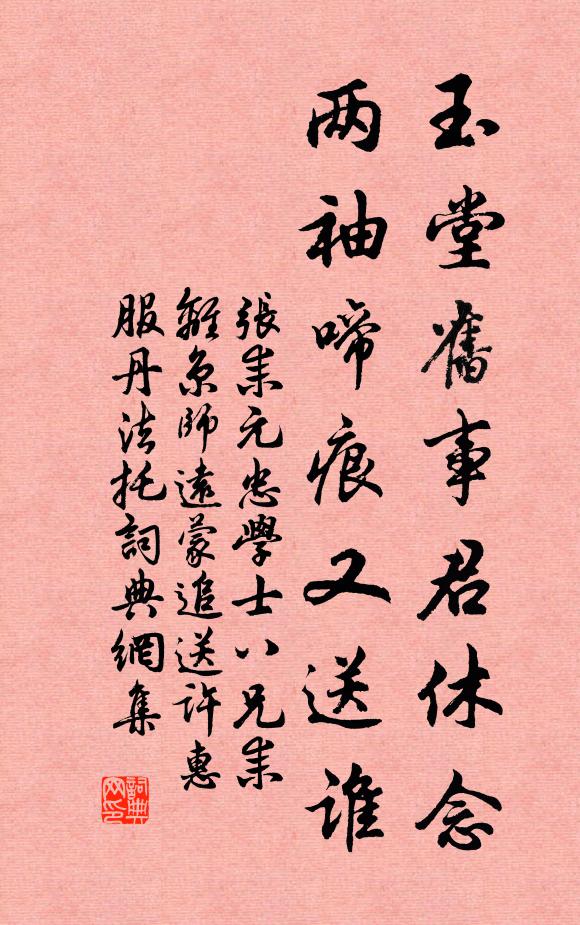 玉堂舊事君休念
两袖啼痕又送谁
張耒元忠學士八兄耒
離京師遠蒙追送許惠
服丹法托詞典網集
詞典
网印